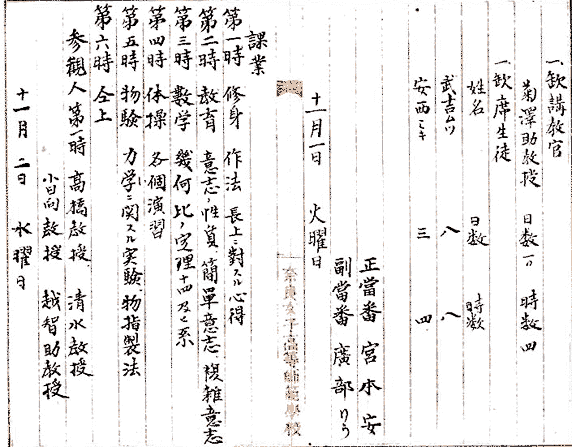 一、欠講教官
菊澤助教授 日数 一日 時数 四
一、欠席生徒
姓名 日数 時数
武吉ムツ 八 八
安西ミキ 三 四
正當番 宮本 安
副當番 廣部 りう
十一月一日 火曜日
奈良女子高等師範學校
課業
第一時 修身 作法 長上ニ對スル心得
第二時 教育 意志ノ性質、簡單意志、複雑意志
第三時 數学 幾何比ノ定理十四及ビ系
第四時 体操 各個演習
第五時 物驗 力学ニ関スル実驗、物指製法
第六時 仝上
参観人 第一時 高橋教授 清水教授
小日向教授 越智助教授
十一月二日 水曜日